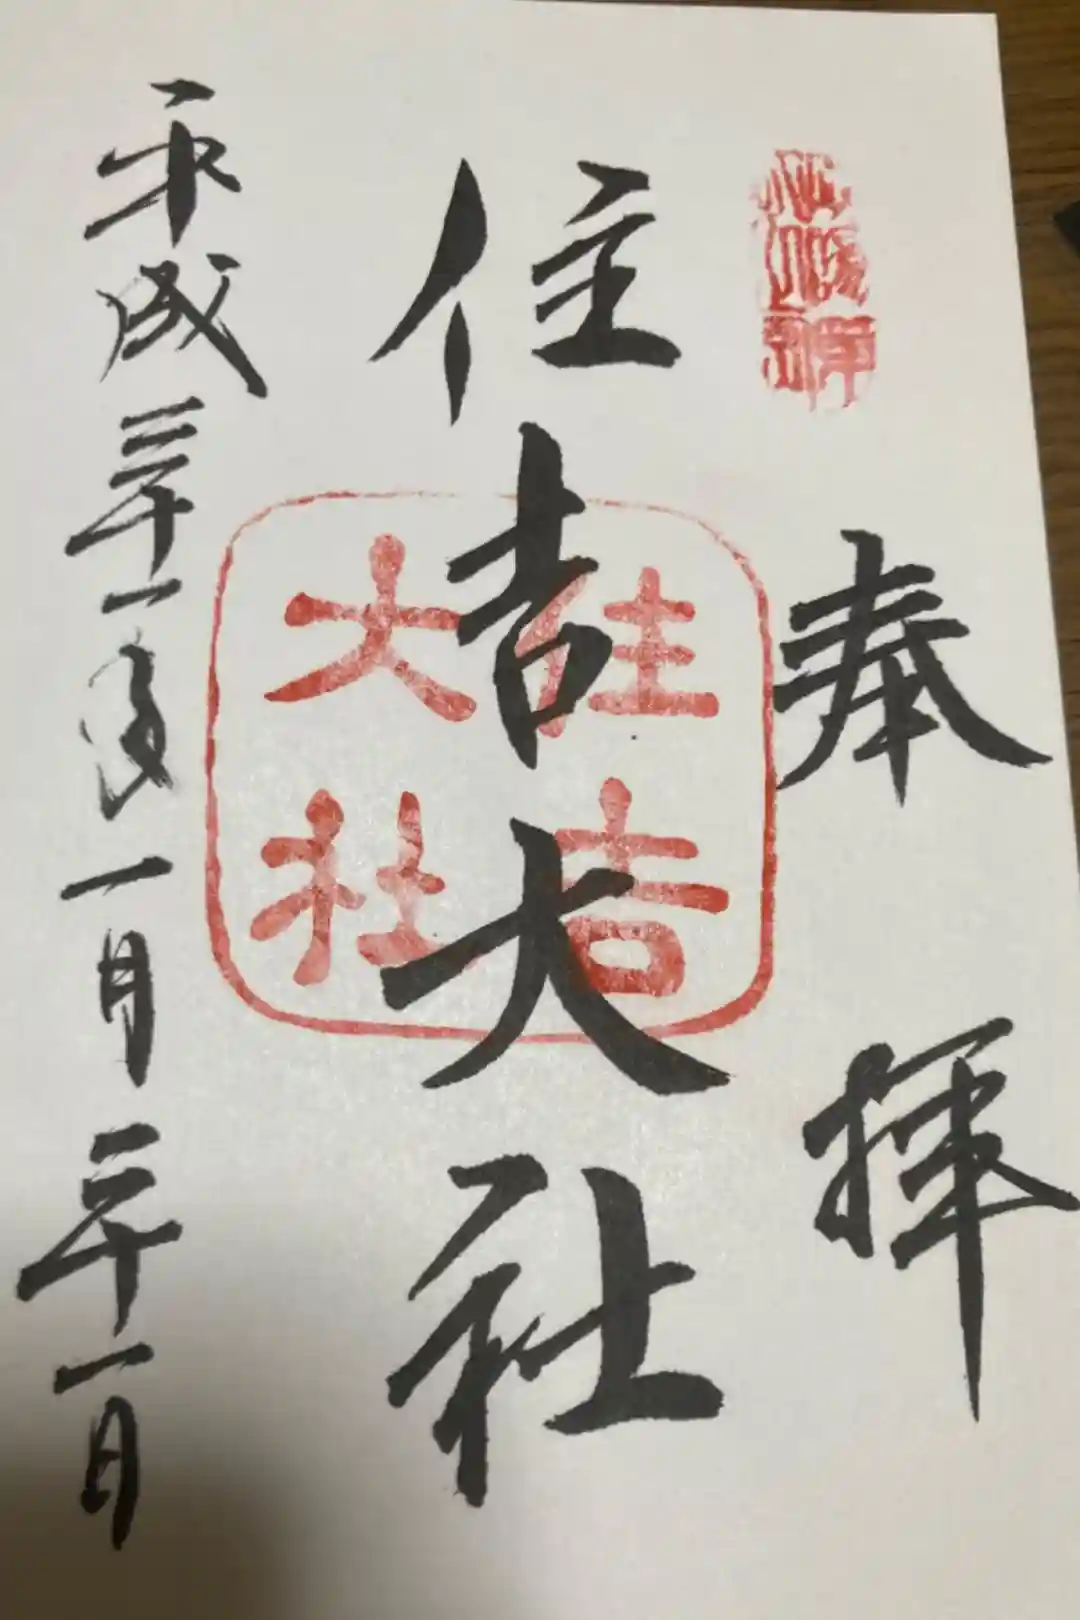 奉拝
住吉大社
住吉
大社
平成三十一年一月二十一日